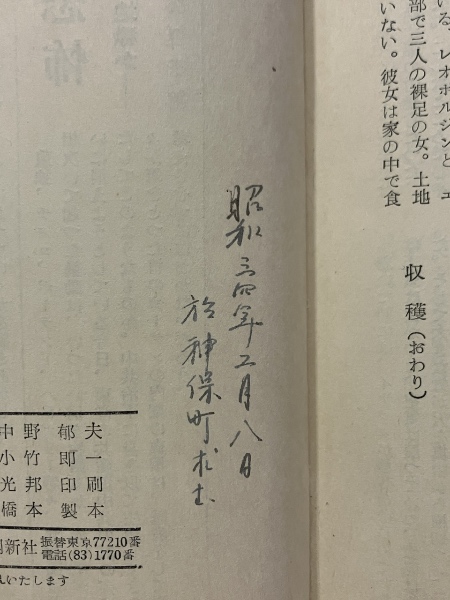 いる。レオポルジンと、エ
部で三人の裸足の女。土地
いない。彼女は家の中で食
収穫（おわり）
昭和三四年二月八日
於神保町求む
中野郁夫
小竹即一
光邦印刷
橋本製本
新社 振替東京77210番
電話(83)1770番
いたします